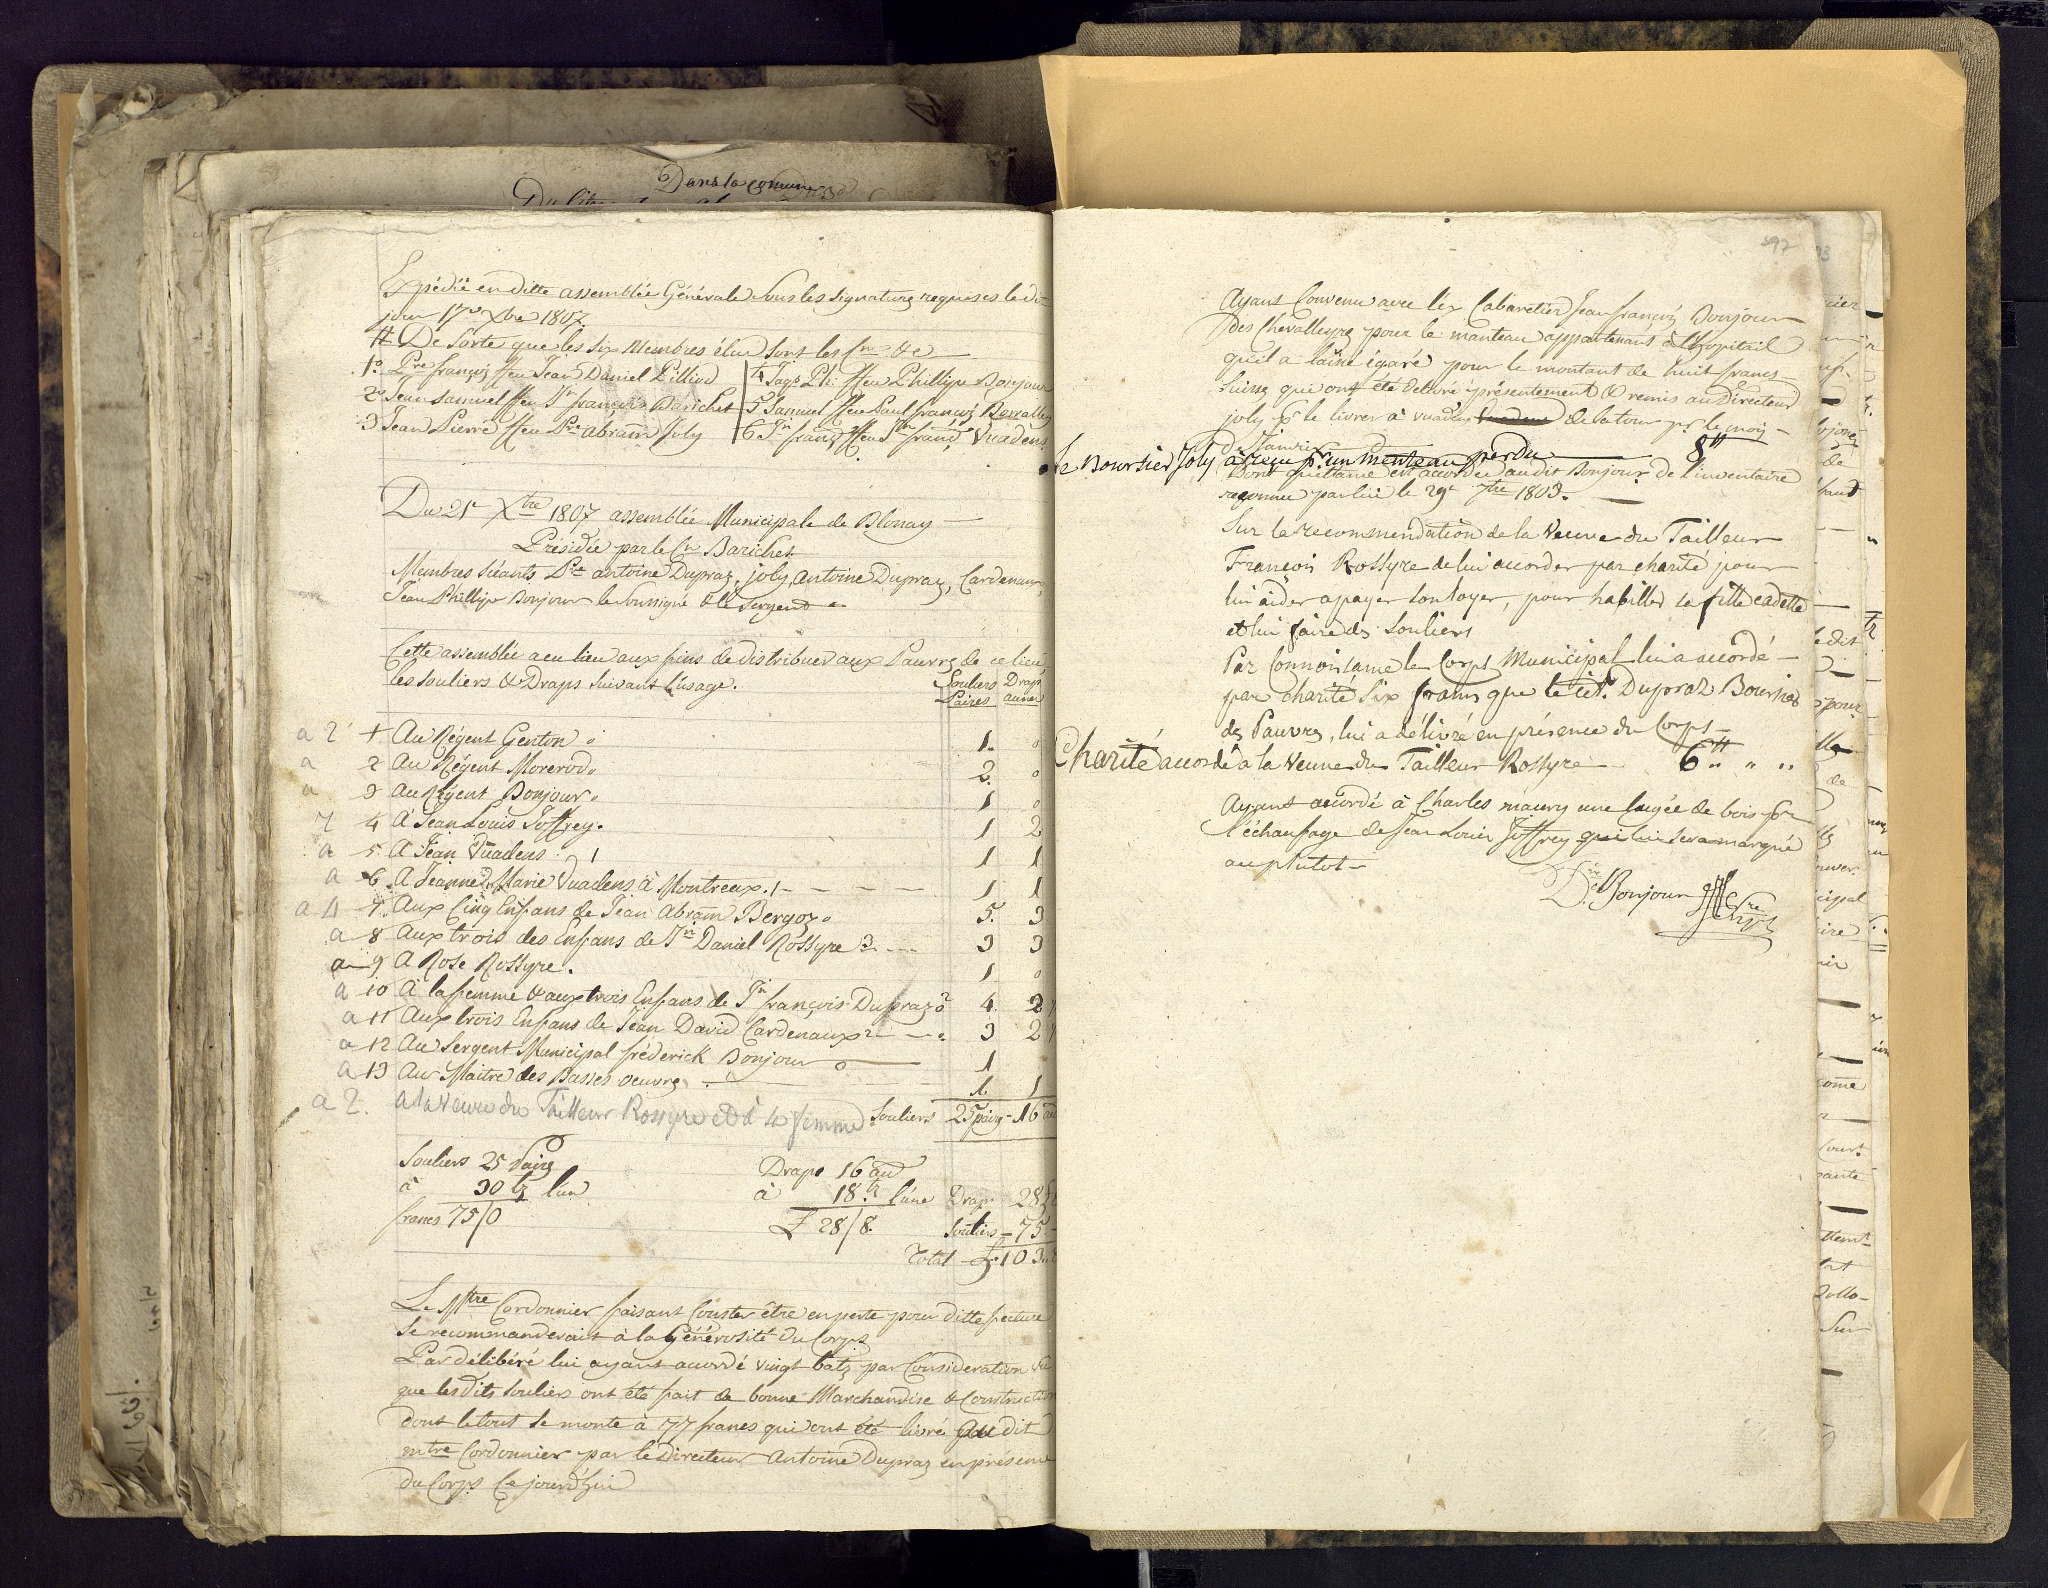 Dans la comune
Expédié en ditte assemblée Générale sous les signatures requises le dit
jour 17e Xbre 1807.
De sorte que les six Membres élus sont les Cns &c
1o Pre françois ffeu Jean Daniel Pilliod
2o Jean Samuel ffeu Jn françois Barichet
3 Jean Pierre ffeu Pre abram Joly
4 Jaqs Ph: ffeu Phillipe Bonjour
5 Samuel ffeu Paul françois
6 Jn franç ffeu Jn franç Vuadens
Du 21e Xbre 1807 assemblée Municipale de Blonay
Présidée par le Cn Barichet
Membres séants Pre antoine Dupraz, joly, Antoine Dupraz, Cardenaux,
Jean Phillipe Bonjour le soussigné & le sergent
Cette assemblée a eu lieu aux fins de distribuer aux Pauvres de ce lieu,
les souliers & Draps suivant l'usage.
Souliers Draps
Paires aunes
a 2 1 Au Régent Genton 1. 0
a 2 Au Régent Morerod 2. 0
a 3 Au Régent Bonjour. 1 0
4 A Jean Louis Joffrey. 1 2
a 5. A Jean Vuadens 1 1 1
a 6. A Jeanne Marie Vuadens à Montreux. 1 - - - - 1 1
a 4 7. Aux Cinq Enfans de Jean Abram Bergoz. 5. 3
a 8 Aux trois des Enfans de Jn Daniel Rossyre 3 3 3
a 9 A Rose Rossyre. 1 0
a 10 A la femme & aux trois Enfans de Jn françois Dupraz 4. 2
a 11 Aux trois Enfans de Jean David Cardenaux 3 2
a 12 Au Sergent Municipal fréderick Bonjour 1
a 13 Au Maitre des Basses oeuvres 1. 1
a 2. a la veuve du Tailleur Rossyre et à la femme Souliers 25 pairs - 16 au
Souliers 25 Paires
à 30 bz l'un
francs 75/0
Draps 16 au
à 18 bz l'une
L 28/8.
Draps 28
Souliers - 75
Total L. 103
Le Mtre Cordonnier faisant Conster être en perte pour ditte facture
se recommanderait à la Générosité du Corps
Par délibéré lui ayant accordé vingt batz par Considération
que lesdits souliers ont été fait de bonne Marchandise & Construction
dont le tout se monte à 77 francs qui ont été livré au dit
mtre Cordonnier par le Directeur Antoine Dupraz en présence
du Corps Ce jourd'hui
Ayant Convenu avec l'ex Cabaretier Jean françois Bonjour
des Chevalleyres pour le manteau appartenant à l'hopital
qu'il a laissé égaré pour le montant de huit francs
suisses qui ont été délivré présentement & remis au Directeur
joly pr le livrer à vuadens de la tour pr le mois
de Janvier
le Boursier Joly a reçu pr un Manteau perdu 8
Dont quittance est accordée au dit Bonjour de l'inventaire
reconnu par lui le 29e 7bre 1803.
Sur la recommendation de la Veuve du Tailleur
François Rossyre de lui accorder par charité pour
lui aider a payer son loyer, pour habiller sa fille cadette
et lui faire des souliers
Par Connoissance le Corps Municipal lui a accordé
par charité six francs que le cit. Dupraz Boursier
des Pauvres, lui a délivré en présence du Corps
Charité accordé a la Veuve du Tailleur Rossyre 6
Ayant accordé à Charles maury une lugée de bois pr
l'échaufage de Jean Louis Joffrey qui lui sera marqué
au plutot
Bonjour